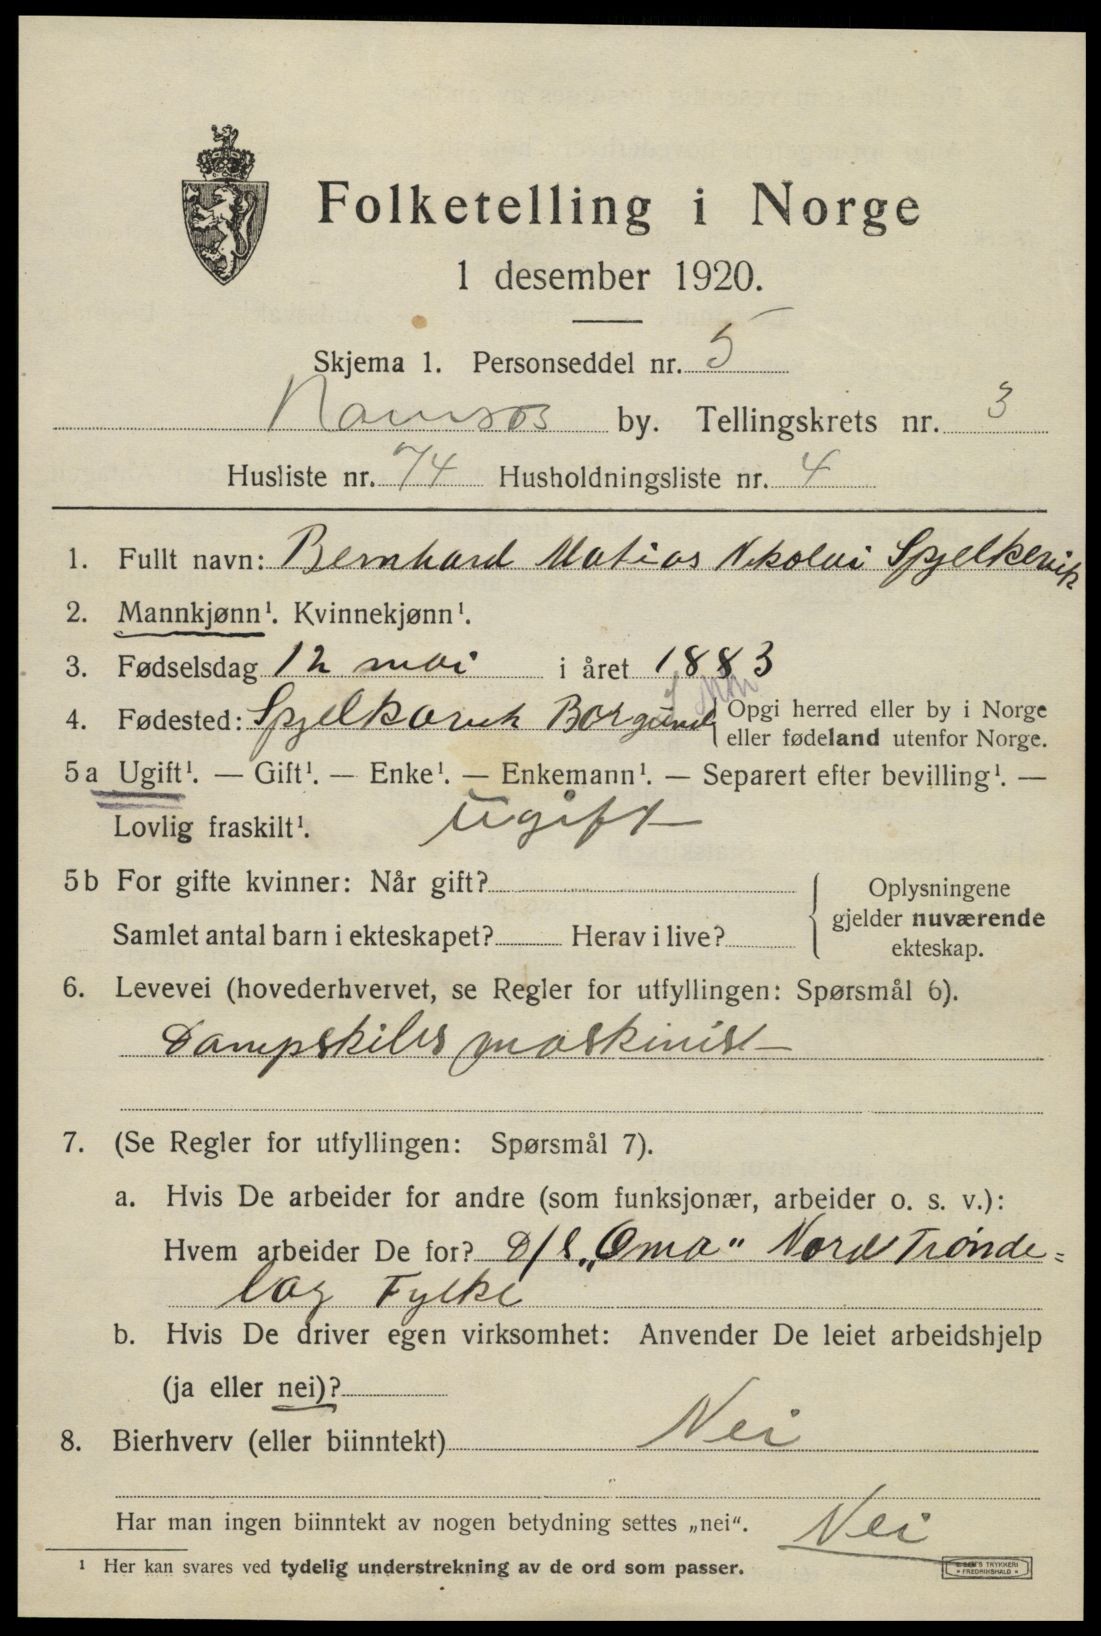 Folketelling i Norge
1 desember 1920.
Skjema 1. Personseddel nr. 5
Namsos by. Tellingskrets nr. 3
Husliste nr. 74 Husholdningsliste nr. 4
1. Fullt navn: Bernhard Matias Nikolai Spjelkevik
2. Mannkjønn¹. Kvinnekjønn¹.
3. Fødselsdag 12 mai i året 1883
4. Fødested: Spjelkavik Borgund { Opgi herred eller by i Norge
eller fødeland utenfor Norge.
5a Ugift¹. — Gift¹. — Enke¹. — Enkemann¹. — Separert efter bevilling¹. —
Lovlig fraskilt¹. ugift
5b For gifte kvinner: Når gift? { Oplysningene
gjelder nuværende
Samlet antal barn i ekteskapet? Herav i live?
ekteskap.
6. Levevei (hovederhvervet, se Regler for utfyllingen: Spørsmål 6).
Dampskibs maskinist
7. (Se Regler for utfyllingen: Spørsmål 7).
a. Hvis De arbeider for andre (som funksjonær, arbeider o. s. v.):
Hvem arbeider De for? D/S „Oma" Nord Trønde=
lag Fylke
b. Hvis De driver egen virksomhet: Anvender De leiet arbeidshjelp
(ja eller nei)?
8. Bierhverv (eller biinntekt) Nei
Har man ingen biinntekt av nogen betydning settes „nei". Nei
¹ Her kan svares ved tydelig understrekning av de ord som passer.
TRYKKERI
FREDRIKSHALD